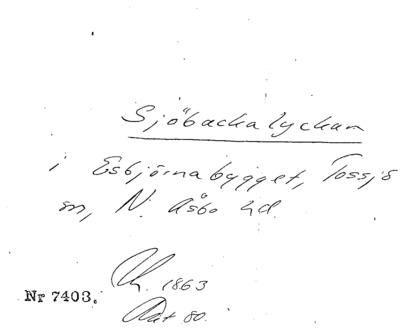 Sjöbackalyckan
i Esbjörnabygget, Tossjö
sn, N. Åsbo hd.
Uh. 1863
Nr 7403.
Akt 80.